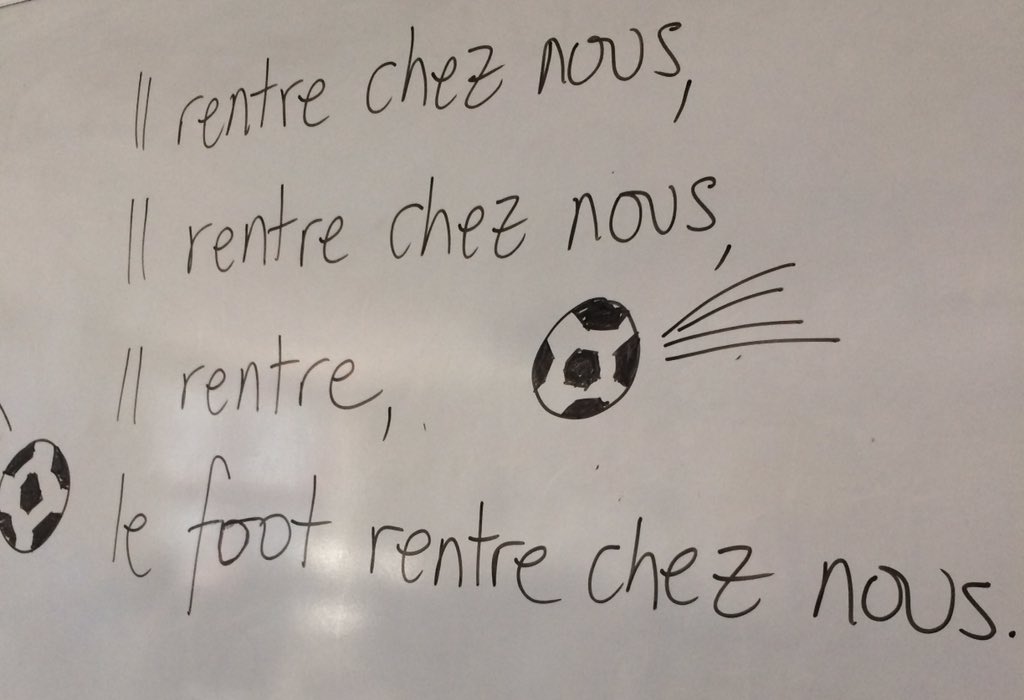 Il rentre chez nous,
Il rentre chez nous,
Il rentre,
le foot rentre chez nous.